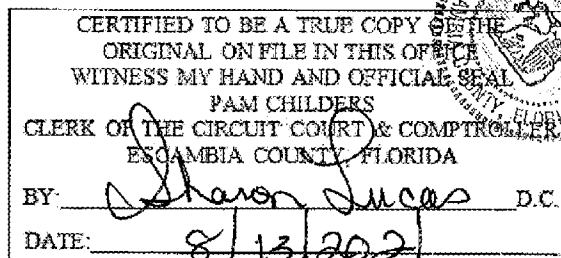 CERTIFIED TO BE A TRUE COPY OF THE
ORIGINAL ON FILE IN THIS OFFICE
WITNESS MY HAND AND OFFICIAL SEAL
PAM CHILDERS
CLERK OF THE CIRCUIT COURT & COMPTROLLER
ESCAMBIA COUNTY, FLORIDA
BY: Sharon Lucas D.C.
DATE: 8/13/2021